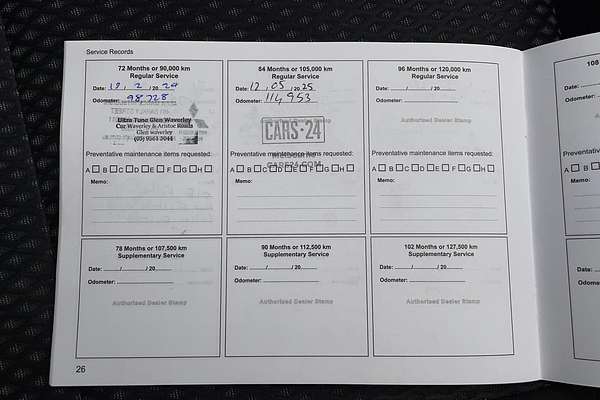 Service Records
72 Months or 90,000 km
Regular Service
Date: 19 / 2 / 20 20
Odometer: 98728
Ultra Tune Glen Waverley
Cnr Waverley & Aristoc Roads
Glen waverley
(03) 9561 3044
Preventative maintenance items requested:
A B C D E F G H
Memo:
84 Months or 105,000 km
Regular Service
Date: 12 / 05 / 20 25
Odometer: 114953
CARS·24
MELBOURNE
CARS24.COM
Preventative maintenance items requested:
A B C D E F G H
Memo:
96 Months or 120,000 km
Regular Service
Date: / / 20
Odometer:
Authorised Dealer Stamp
Preventative maintenance items requested:
A B C D E F G H
Memo:
78 Months or 107,500 km
Supplementary Service
Date: / / 20
Odometer:
Authorised Dealer Stamp
90 Months or 112,500 km
Supplementary Service
Date: / / 20
Odometer:
Authorised Dealer Stamp
102 Months or 127,500 km
Supplementary Service
Date: / / 20
Odometer:
Authorised Dealer Stamp
26
108
Date:
Odometer:
Preventative
A
Memo:
Date:
Odometer: